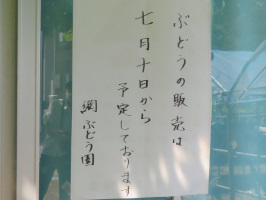 ぶどうの販売は
七月十日から
予定しております
網ぶどう園